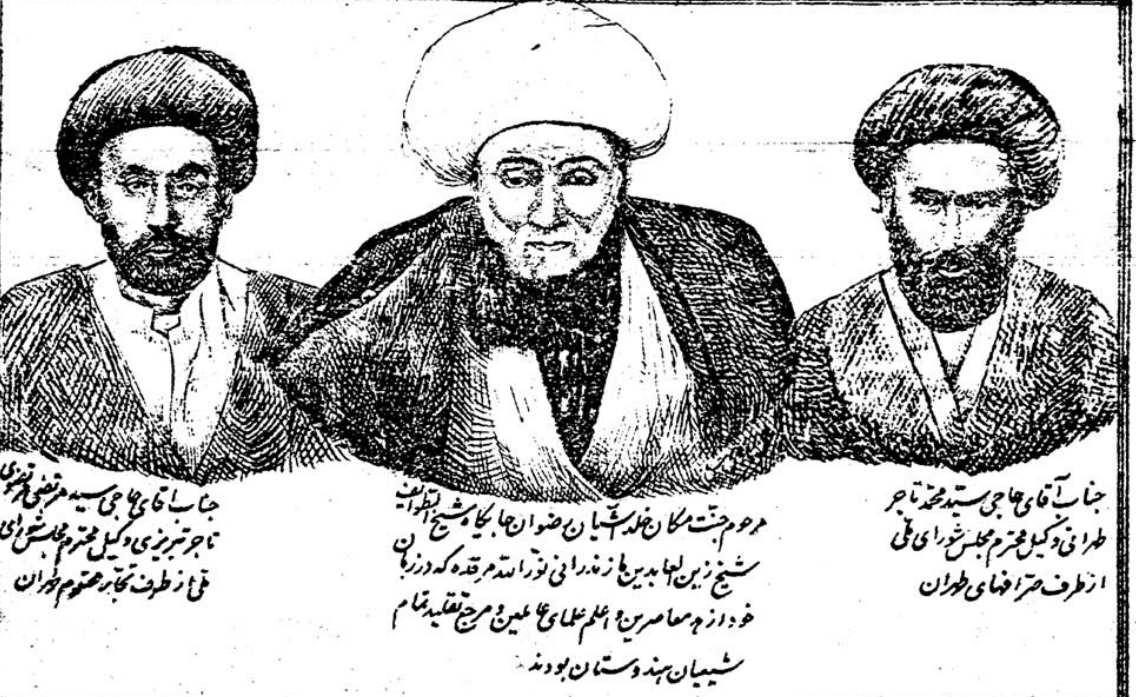 جناب آقای حاجی سید محمد تاجر
طهرانی وکیل محترم مجلس شورای ملی
از طرف صرافهای طهران
مرحوم جنت مکان خلد آشیان رضوان جایگاه شیخ الطوایف
شیخ زین العابدین مازندرانی نورالله مرقده که در زمان
خود از معاصرین و اعلم علمای عاملین و مرجع تقلید تمام
شیعیان هندوستان بودند
جناب آقای حاجی سید مرتضی مرتضوی
تاجر تبریزی وکیل محترم مجلس شورای
ملی از طرف تجار محترم طهران